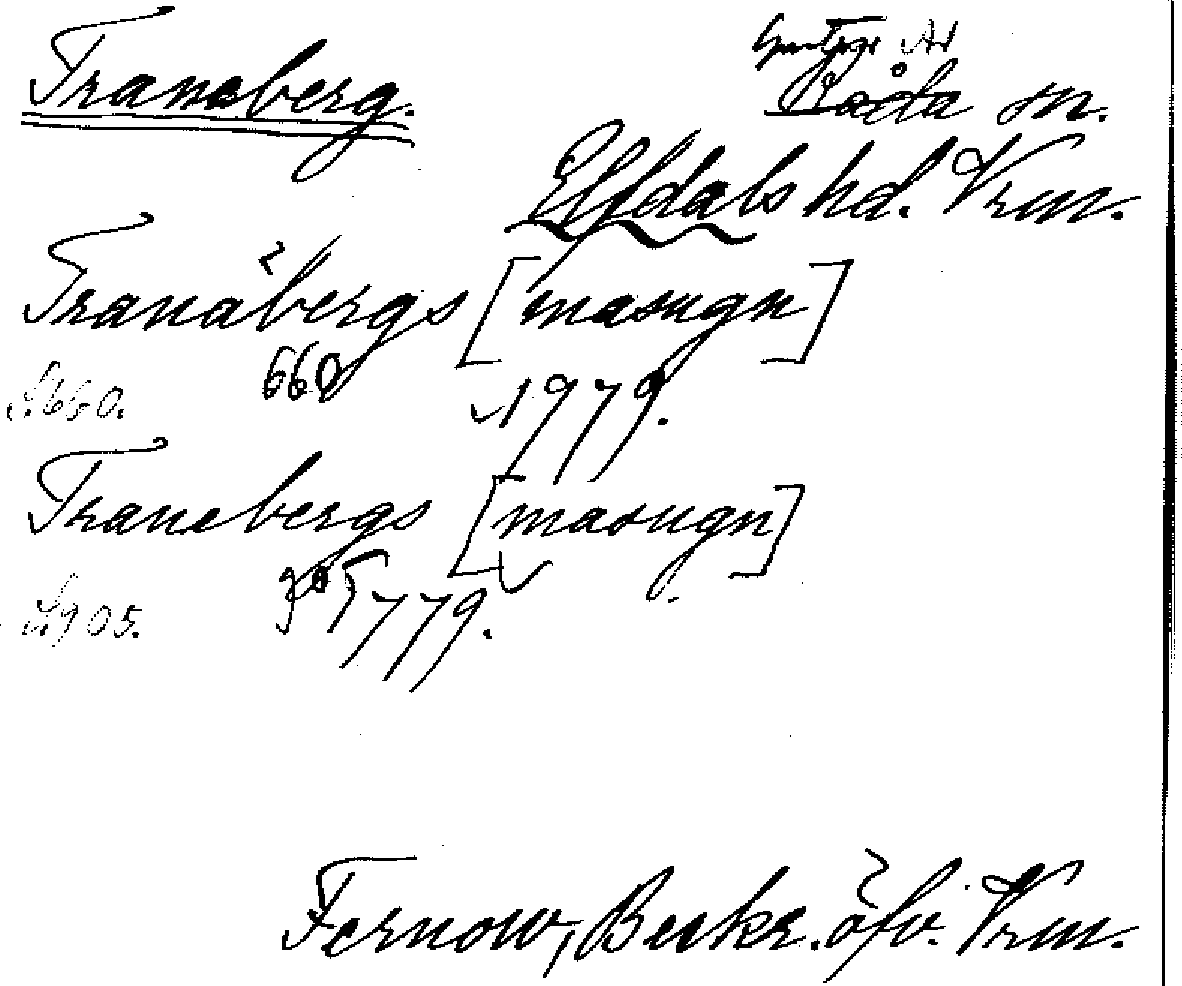 Traneberg.
Råda sn.
Elfdals hd. Vrm.
Tranäbergs [masugn]
S. 660. 660 1779.
Tranebergs [masugn]
S. 905. 905 1779.
Fernow, Beskr. öfv. Vrm.